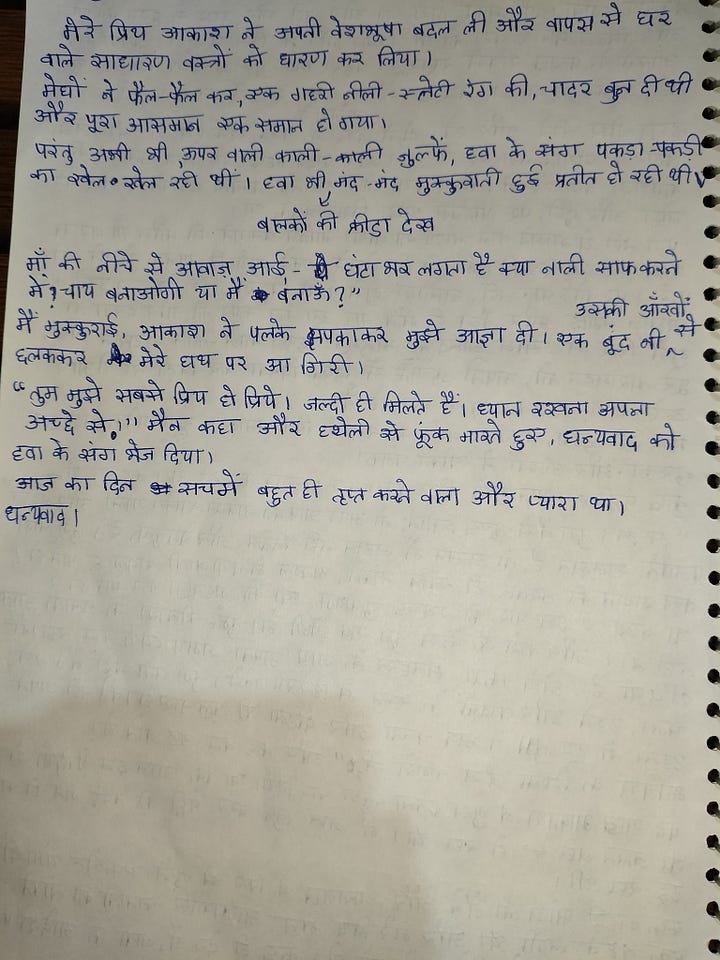 मेरे प्रिय आकाश ने अपनी वेशभूषा बदल ली और वापस से घर
वाले साधारण वस्त्रों को धारण कर लिया।
मेघों ने फैल-फैल कर, एक गहरी नीली-स्लेटी रंग की, चादर बुन दी थी
और पूरा आसमान एक समान हो गया।
परंतु अभी भी, ऊपर वाली काली-काली जुल्फें, हवा के संग पकड़ा-पकड़ी
का खेल खेल रही थीं। हवा भी मंद-मंद मुस्कुराती हुई प्रतीत हो रही थी
बालकों की क्रीडा देख
माँ की नीचे से आवाज़ आई,- घंटा भर लगता है क्या नाली साफ करने
में? चाय बनाओगी या मैं बनाऊँ?"
उसकी आँखों
मैं मुस्कुराई, आकाश ने पलके झपकाकर मुझे आज्ञा दी। एक बूंद भी से
छलककर मेरे हाथ पर आ गिरी।
"तुम मुझे सबसे प्रिय हो प्रिये। जल्दी ही मिलते हैं। ध्यान रखना अपना
अच्छे से!" मैंन कहा और हथेली से फूंक मारते हुए, धन्यवाद को
हवा के संग भेज दिया।
आज का दिन सचमें बहुत ही तृप्त करने वाला और प्यारा था।
धन्यवाद।